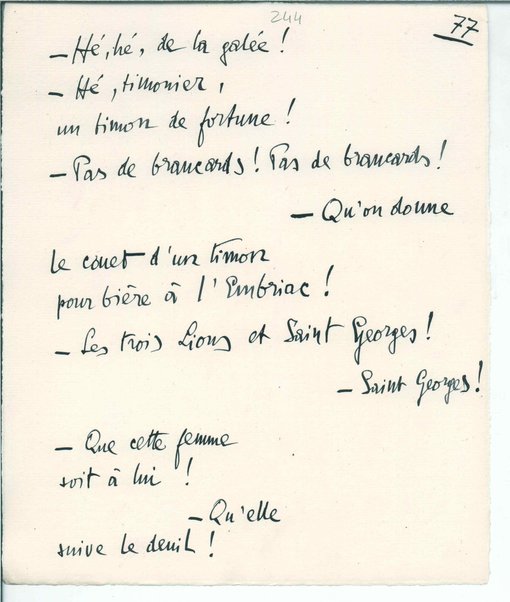 244
77
– Hé, hé, de la galée !
– Hé, timonier,
un timon de fortune !
– Pas de brancards ! Pas de brancards !
– Qu'on donne
le couet d'un timon
pour bière à l'Embriac !
– Les trois Lions et Saint Georges !
– Saint Georges !
– Que cette femme
soit à lui !
– Qu'elle
suive le deuil !